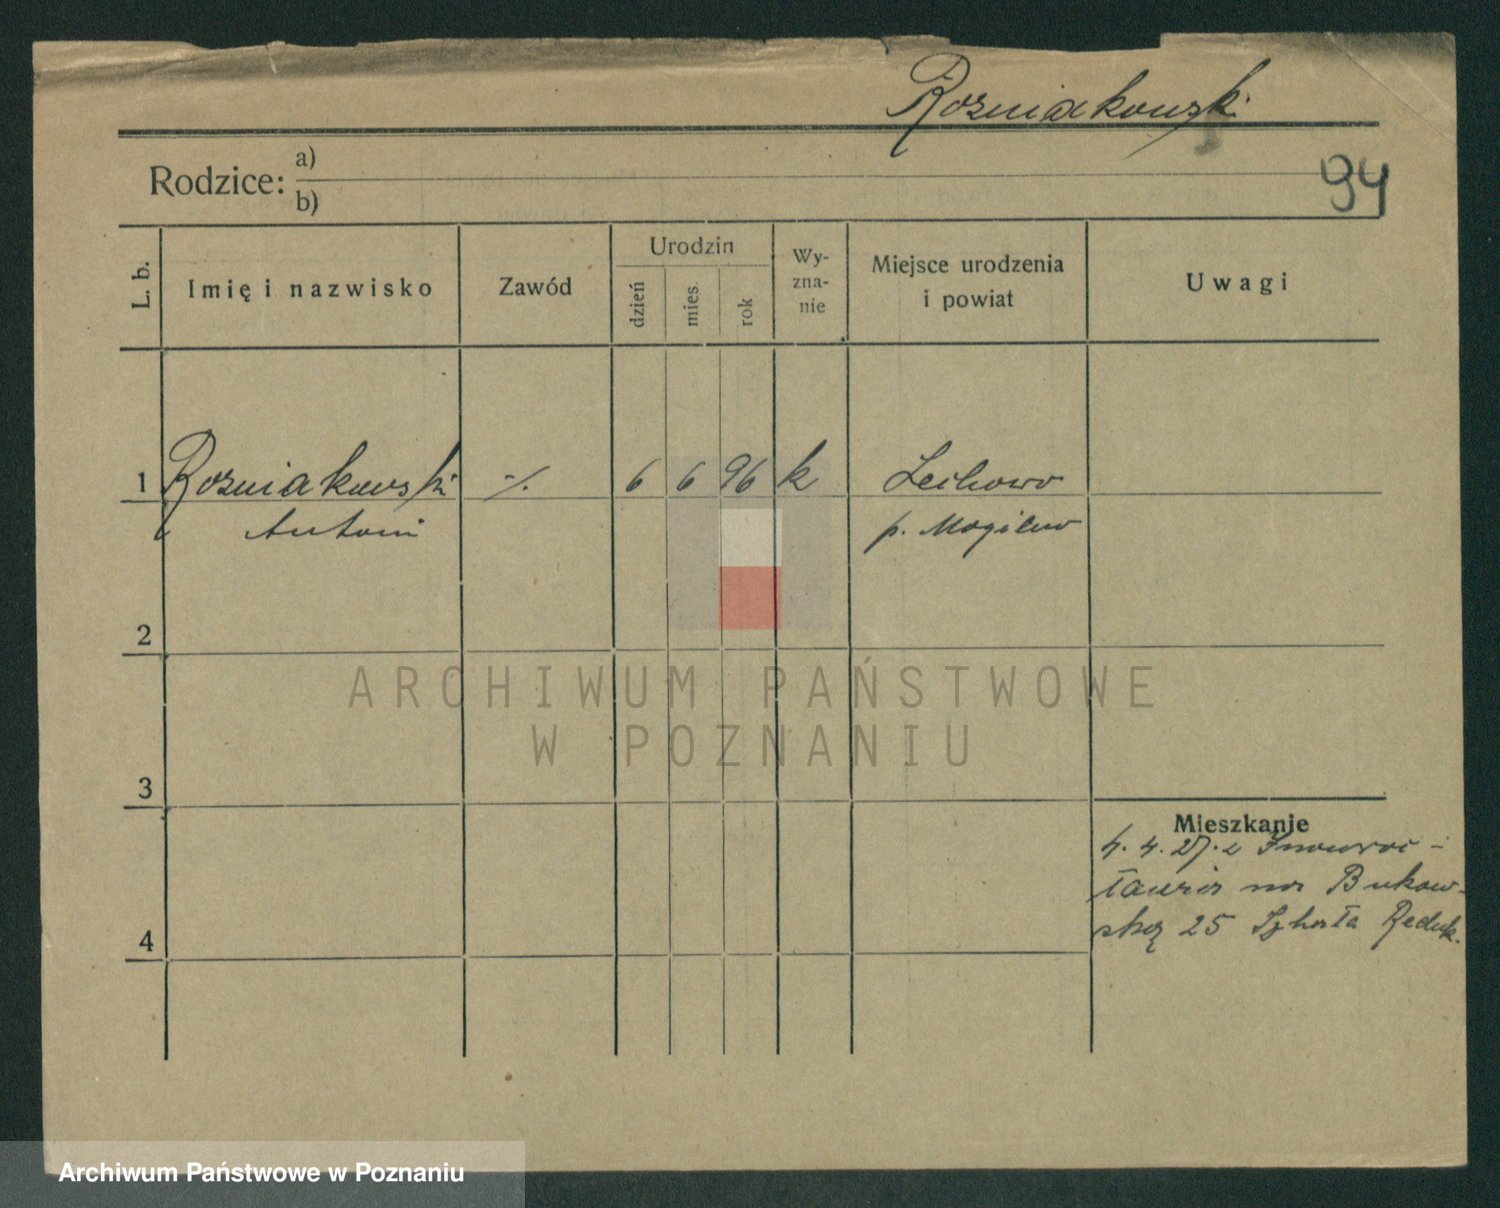 Rozniakowski
94
Rodzice: a)
b)
L. b.
Imię i nazwisko
Zawód
Urodzin
dzień
mies.
rok
Wy-
zna-
nie
Miejsce urodzenia
i powiat
Uwagi
1 Rozniakowski -/. 6 6 96 k Lechowo
Antoni p. Mogilno
2
3
4
Mieszkanie
4. 4. 27. z Inowroc-
ławia na Bukow-
ską 25
ARCHIWUM PAŃSTWOWE
W POZNANIU
Archiwum Państwowe w Poznaniu